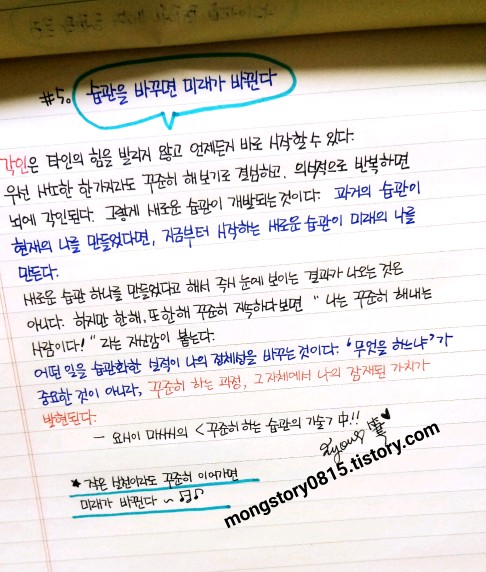 #5. 습관을 바꾸면 미래가 바뀐다
각인은 타인의 힘을 빌리지 않고 언제든지 바로 시작할 수 있다.
우선 사소한 한가지라도 꾸준히 해보기로 결심하고, 의식적으로 반복하면
뇌에 각인된다. 그렇게 새로운 습관이 개발되는것이다. 과거의 습관이
현재의 나를 만들었다면, 지금부터 시작하는 새로운 습관이 미래의 나를
만든다.
새로운 습관 하나를 만들었다고 해서 즉시 눈에 보이는 결과가 나오는 것은
아니다. 하지만 한해, 또 한해 꾸준히 지속하다보면 "나는 꾸준히 해내는
사람이다!" 라는 자신감이 붙는다.
어떤 일을 습관화한 실적이 나의 정체성을 바꾸는 것이다. '무엇을 하느냐'가
중요한 것이 아니라, 꾸준히 하는 과정, 그 자체에서 나의 잠재된 가치가
발현된다.
- 요시이 마사시의 <꾸준히 하는 습관의 기술> 中!!
★ 작은 실천이라도 꾸준히 이어가면
미래가 바뀐다 ~ ♬♪
mongstory0815.tistory.com